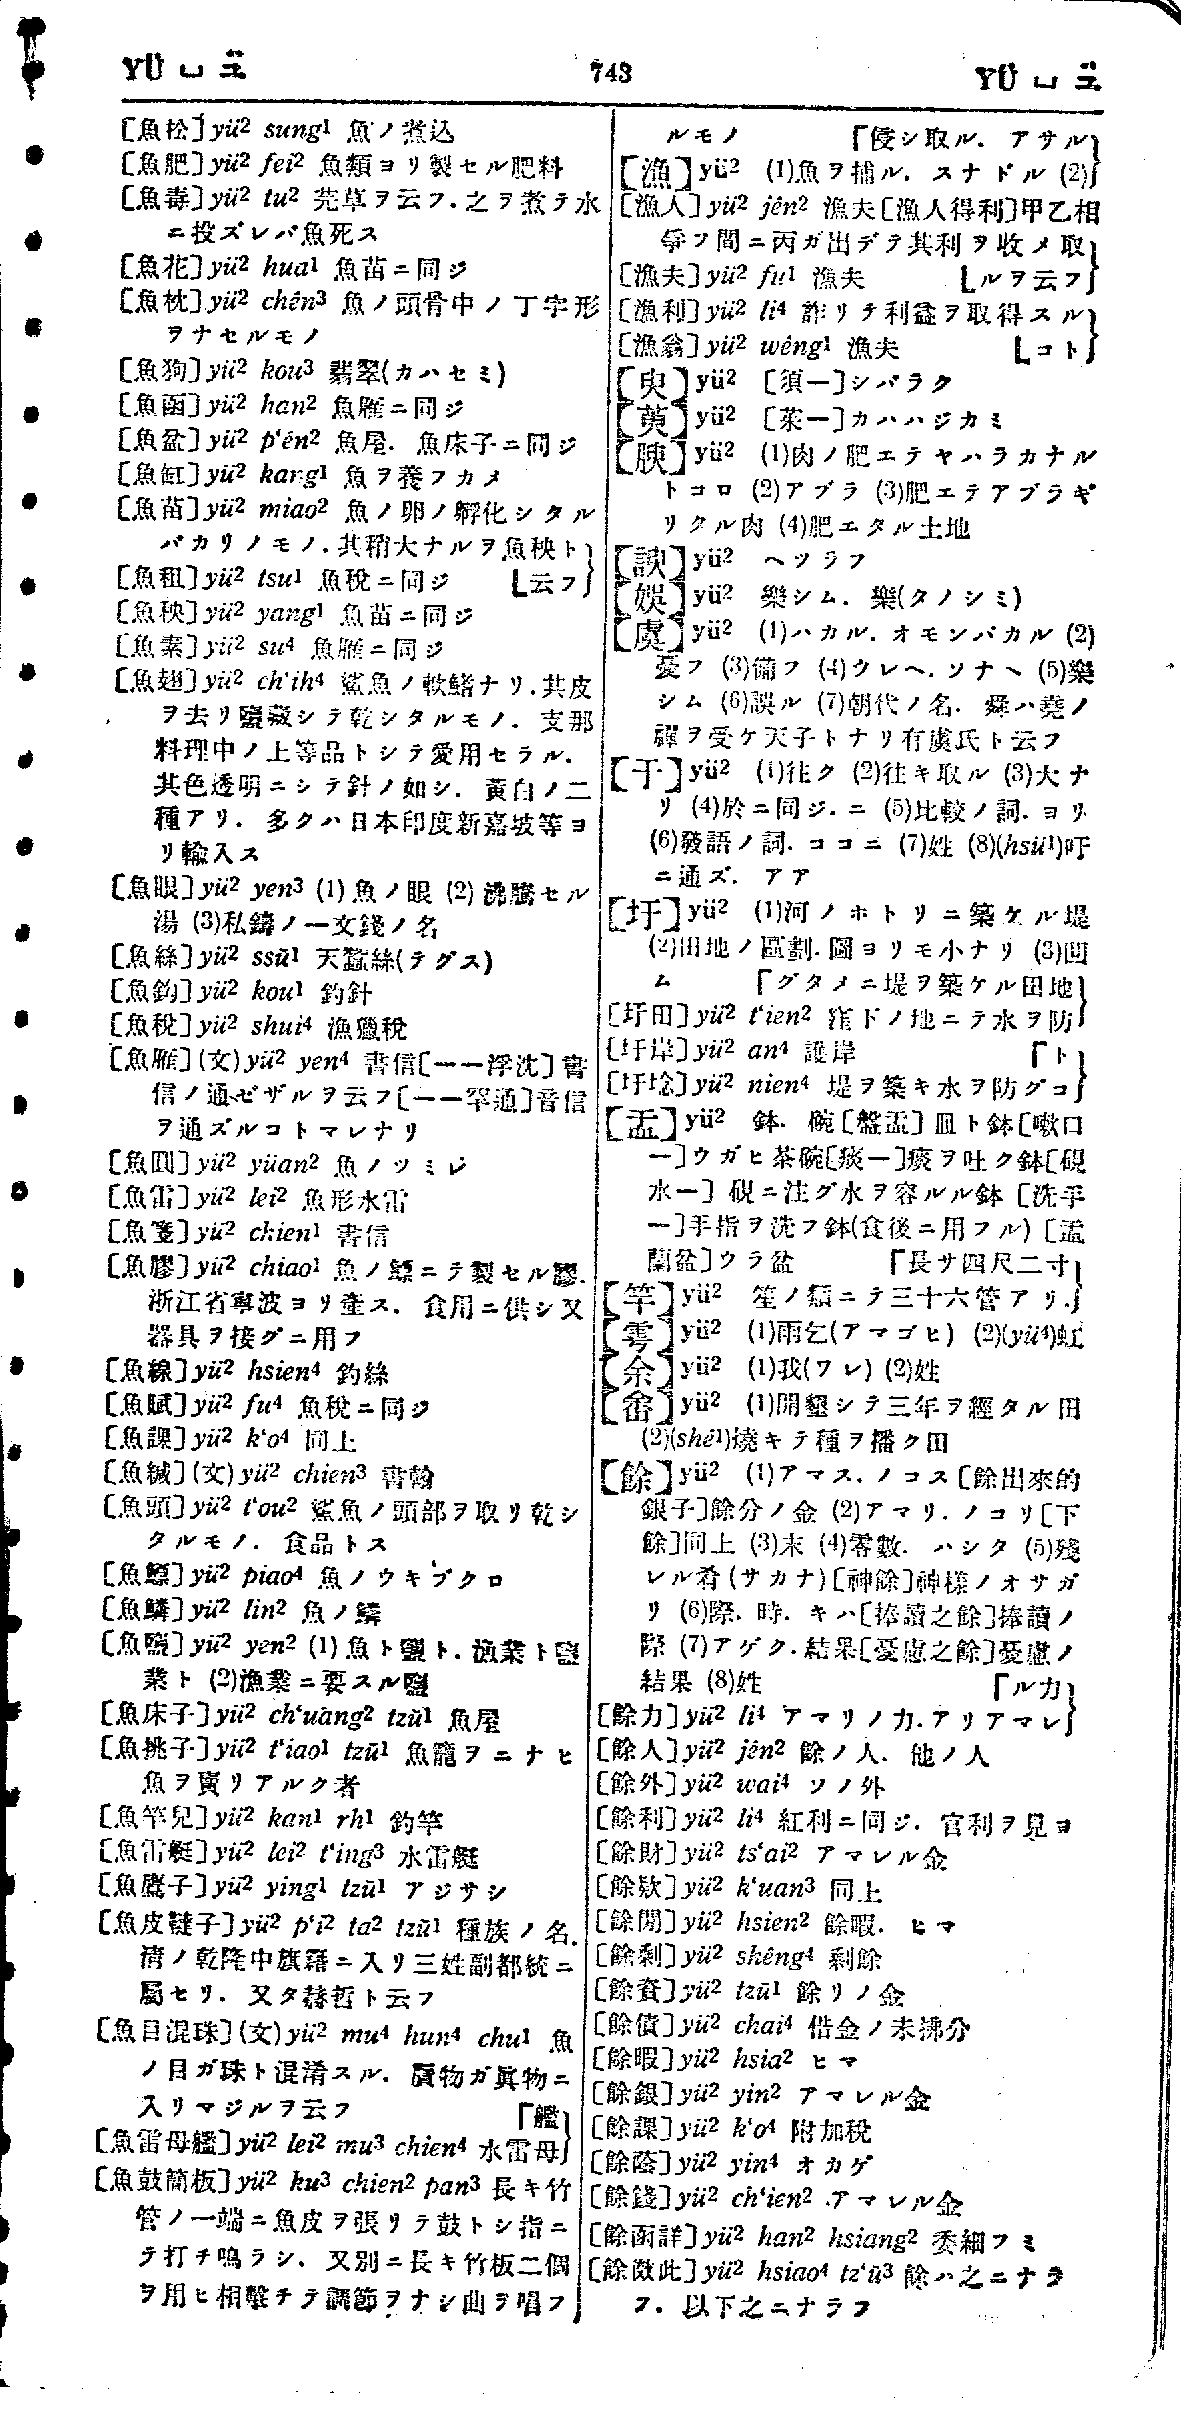 YÜ ㄩ ヹ
743
YÜ ㄩ ヹ
[魚松]yü² sung¹ 魚ノ煮込
[魚肥]yü² fei² 魚類ヨリ製セル肥料
[魚毒]yü² tu² 芫草ヲ云フ.之ヲ煮テ水
ニ投ズレバ魚死ス
[魚花]yü² hua¹ 魚苗ニ同ジ
[魚枕]yü² chên³ 魚ノ頭骨中ノ丁字形
ヲナセルモノ
[魚狗]yü² kou³ 翡翠(カハセミ)
[魚函]yü² han² 魚雁ニ同ジ
[魚盆]yü² p'ên² 魚屋. 魚床子ニ同ジ
[魚缸]yü² kang¹ 魚ヲ養フカメ
[魚苗]yü² miao² 魚ノ卵ノ孵化シタル
バカリノモノ.其稍大ナルヲ魚秧ト
[魚租]yü² tsu¹ 魚稅ニ同ジ ⌊云フ
[魚秧]yü² yang¹ 魚苗ニ同ジ
[魚素]yü² su⁴ 魚雁ニ同ジ
[魚翅]yü² ch'ih⁴ 鯊魚ノ軟鰭ナリ.其皮
ヲ去リ鹽藏シテ乾シタルモノ. 支那
料理中ノ上等品トシテ愛用セラル.
其色透明ニシテ針ノ如シ. 黃白ノ二
種アリ. 多クハ日本印度新嘉坡等ヨ
リ輸入ス
[魚眼]yü² yen³ (1)魚ノ眼 (2)沸騰セル
湯 (3)私鑄ノ一文錢ノ名
[魚絲]yü² ssū¹ 天蠶絲(テグス)
[魚鈎]yü² kou¹ 釣針
[魚稅]yü² shui⁴ 漁獵稅
[魚雁](文)yü² yen⁴ 書信[一一浮沈]書
信ノ通ゼザルヲ云フ[一一罕通]音信
ヲ通ズルコトマレナリ
[魚圓]yü² yüan² 魚ノツミレ
[魚雷]yü² lei² 魚形水雷
[魚箋]yü² chien¹ 書信
[魚膠]yü² chiao¹ 魚ノ鰾ニテ製セル膠.
浙江省寧波ヨリ產ス. 食用ニ供シ又
器具ヲ接グニ用フ
[魚線]yü² hsien⁴ 釣絲
[魚賦]yü² fu⁴ 魚稅ニ同ジ
[魚課]yü² k'o⁴ 同上
[魚緘](文)yü² chien³ 書翰
[魚頭]yü² t'ou² 鯊魚ノ頭部ヲ取リ乾シ
タルモノ. 食品トス
[魚鰾]yü² piao⁴ 魚ノウキブクロ
[魚鱗]yü² lin² 魚ノ鱗
[魚鹽]yü² yen² (1)魚ト鹽ト.漁業ト鹽
業ト (2)漁業ニ要スル鹽
[魚床子]yü² ch'uàng² tzŭ¹ 魚屋
[魚挑子]yü² t'iao¹ tzŭ¹ 魚籠ヲニナヒ
魚ヲ賣リアルク者
[魚竿兒]yü² kan¹ rh¹ 釣竿
[魚雷艇]yü² lei² t'ing³ 水雷艇
[魚鷹子]yü² ying¹ tzŭ¹ アジサシ
[魚皮韃子]yü² p'i² ta² tzŭ¹ 種族ノ名.
淸ノ乾隆中旗籍ニ入リ三姓副都統ニ
屬セリ. 又タ赫哲ト云フ
[魚目混珠](文)yü² mu⁴ hun⁴ chu¹ 魚
ノ目ガ珠ト混淆スル. 贋物ガ眞物ニ
入リマジルヲ云フ ⌈艦
[魚雷母艦]yü² lei² mu³ chien⁴ 水雷母
[魚鼓簡板]yü² ku³ chien² pan³ 長キ竹
管ノ一端ニ魚皮ヲ張リテ鼓トシ指ニ
テ打チ鳴ラシ. 又別ニ長キ竹板二個
ヲ用ヒ相擊チテ調節ヲナシ曲ヲ唱フ
ルモノ ⌈侵シ取ル. アサル
[漁]yü² (1)魚ヲ捕ル. スナドル (2)
[漁人]yü² jên² 漁夫[漁人得利]甲乙相
爭フ間ニ丙ガ出デテ其利ヲ收メ取
[漁夫]yü² fu¹ 漁夫 ⌊ルヲ云フ
[漁利]yü² li⁴ 詐リテ利益ヲ取得スル
[漁翁]yü² wêng¹ 漁夫 ⌊コト
[臾]yü² [須一]シバラク
[萸]yü² [茱一]カハハジカミ
[腴]yü² (1)肉ノ肥エテヤハラカナル
トコロ (2)アブラ (3)肥エテアブラギ
リクル肉 (4)肥エタル土地
[諛]yü² ヘツラフ
[娛]yü² 樂シム. 樂(タノシミ)
[虞]yü² (1)ハカル. オモンパカル (2)
憂フ (3)備フ (4)ウレヘ.ソナヘ (5)樂
シム (6)誤ル (7)朝代ノ名. 舜ハ堯ノ
禪ヲ受ケ天子トナリ有虞氏ト云フ
[于]yü² (1)往ク (2)往キ取ル (3)大ナ
リ (4)於ニ同ジ.ニ (5)比較ノ詞.ヨリ
(6)發語ノ詞.ココニ (7)姓 (8)(hsü¹)吁
ニ通ズ. アア
[圩]yü² (1)河ノホトリニ築ケル堤
(2)田地ノ區劃.圖ヨリモ小ナリ (3)圍
ム ⌈グタメニ堤ヲ築ケル田地
[圩田]yü² t'ien² 窪下ノ地ニテ水ヲ防
[圩岸]yü² an⁴ 護岸 ⌈ト
[圩埝]yü² nien⁴ 堤ヲ築キ水ヲ防グコ
[盂]yü² 鉢. 碗[盤盂]皿ト鉢[嗽口
一]ウガヒ茶碗[痰一]痰ヲ吐ク鉢[硯
水一]硯ニ注グ水ヲ容ルル鉢 [洗手
一]手指ヲ洗フ鉢(食後ニ用フル)[盂
蘭盆]ウラ盆 ⌈長サ四尺二寸
[竽]yü² 笙ノ類ニテ三十六管アリ.
[雩]yü² (1)雨乞(アマゴヒ) (2)(yü⁴)虹
[余]yü² (1)我(ワレ) (2)姓
[畬]yü² (1)開墾シテ三年ヲ經タル田
(2)(shê¹)燒キテ種ヲ播ク田
[餘]yü² (1)アマス.ノコス[餘出來的
銀子]餘分ノ金 (2)アマリ.ノコリ[下
餘]同上 (3)末 (4)零數. ハシタ (5)殘
レル肴(サカナ)[神餘]神樣ノオサガ
リ (6)際. 時. キハ[捧讀之餘]捧讀ノ
際 (7)アゲク.結果[憂慮之餘]憂慮ノ
結果 (8)姓 ⌈ル力
[餘力]yü² li⁴ アマリノ力.アリアマレ
[餘人]yü² jên² 餘ノ人. 他ノ人
[餘外]yü² wai⁴ ソノ外
[餘利]yü² li⁴ 紅利ニ同ジ. 官利ヲ見ヨ
[餘財]yü² ts'ai² アマレル金
[餘欵]yü² k'uan³ 同上
[餘閒]yü² hsien² 餘暇. ヒマ
[餘剩]yü² shêng⁴ 剩餘
[餘資]yü² tzŭ¹ 餘リノ金
[餘債]yü² chai⁴ 借金ノ未拂分
[餘暇]yü² hsia² ヒマ
[餘銀]yü² yin² アマレル金
[餘課]yü² k'o⁴ 附加稅
[餘蔭]yü² yin⁴ オカゲ
[餘錢]yü² ch'ien² アマレル金
[餘函詳]yü² han² hsiang² 委細フミ
[餘傚此]yü² hsiao⁴ tz'ŭ³ 餘ハ之ニナラ
フ. 以下之ニナラフ